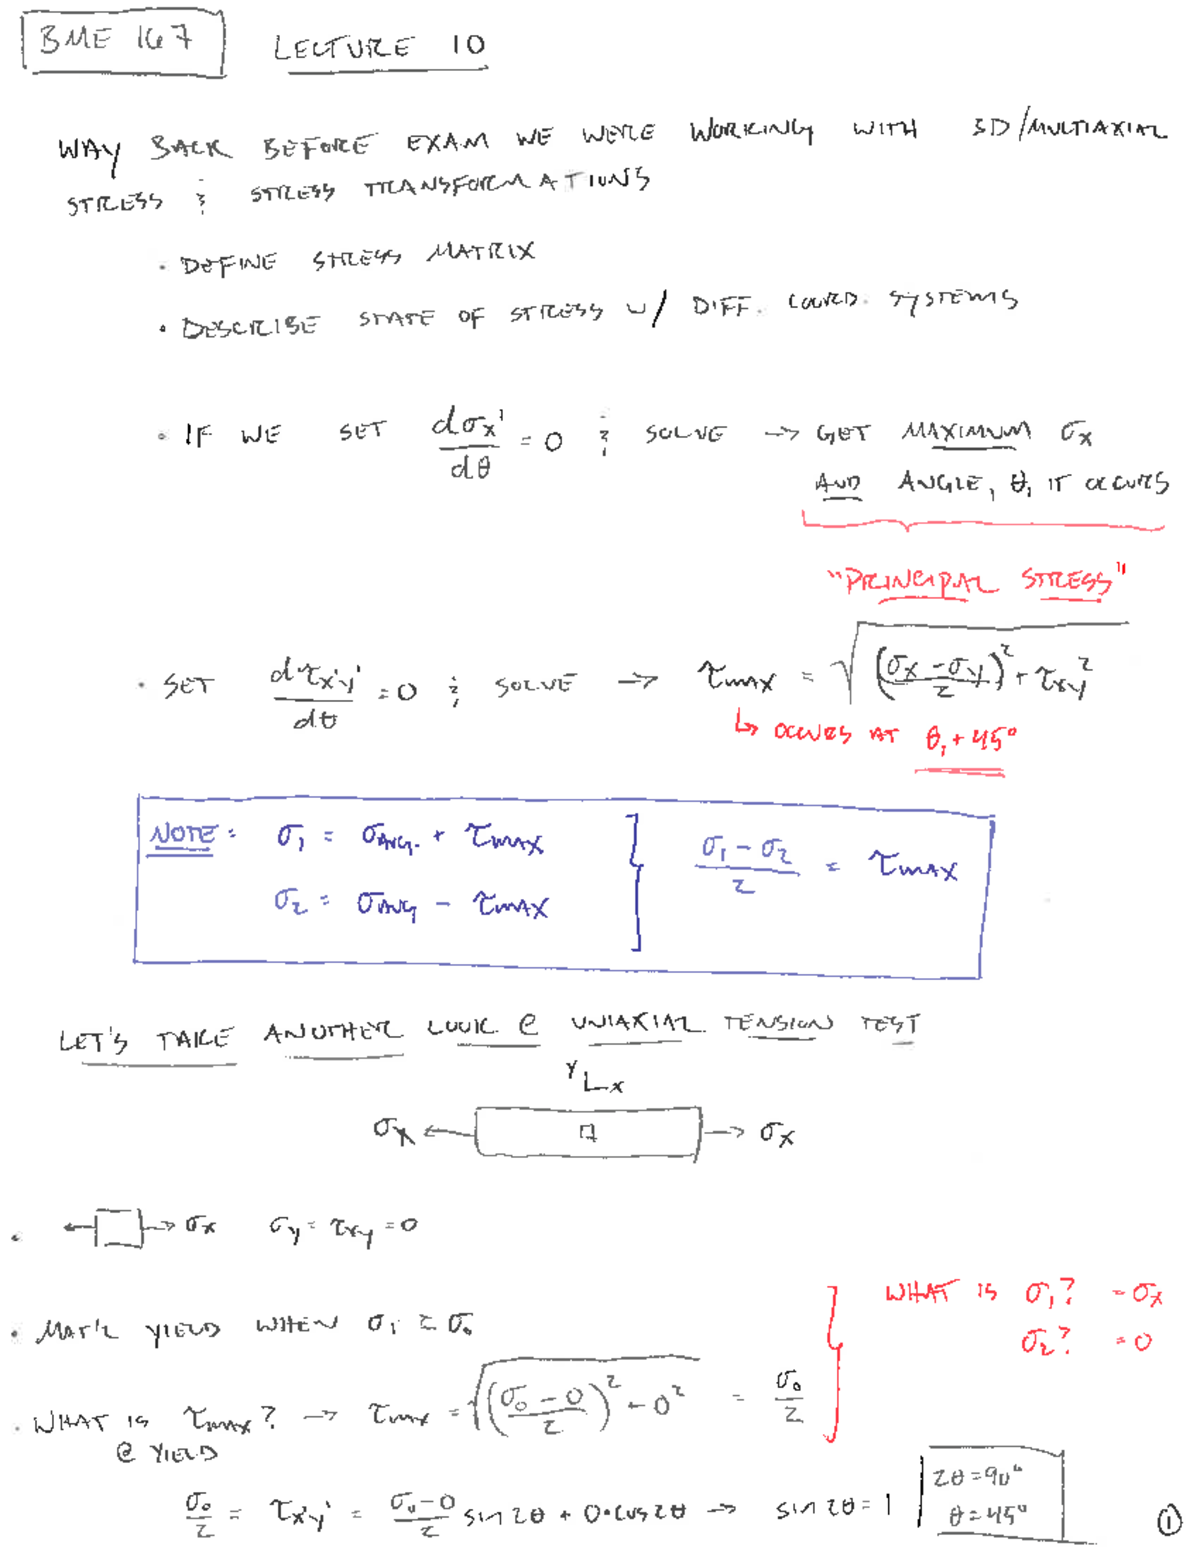 BME 167 LECTURE 10
WAY BACK BEFORE EXAM WE WERE WORKING WITH 3D/MULTIAXIAL
STRESS & STRESS TRANSFORMATIONS
• DEFINE STRESS MATRIX
• DESCRIBE STATE OF STRESS W/ DIFF. COORD. SYSTEMS
• IF WE SET dσx'/dθ = 0 & SOLVE → GET MAXIMUM σx
AND ANGLE, θ, IT OCCURS
"PRINCIPAL STRESS"
• SET dτx'y'/dθ = 0 & SOLVE → τmax = √(((σx - σy)/2)² + τxy²)
↳ OCCURS AT θ₁ + 45°
NOTE: σ₁ = σAVG. + τMAX } (σ₁ - σ₂)/2 = τMAX
σ₂ = σAVG - τMAX
LET'S TAKE ANOTHER LOOK @ UNIAXIAL TENSION TEST
Y X
σx ← → σx
• ← → σx σy = τxy = 0
WHAT IS σ₁? = σx
• MAT'L YIELD WHEN σ₁ ≥ σ₀
σ₂? = 0
• WHAT IS τmax? → τmax = √(((σ₀ - 0)/2)² - 0²) = σ₀/2
@ YIELD
σ₀/2 = τx'y' = (σ₀-0)/2 sin 2θ + 0•cos 2θ → sin 2θ = 1
2θ = 90°
θ = 45°
①